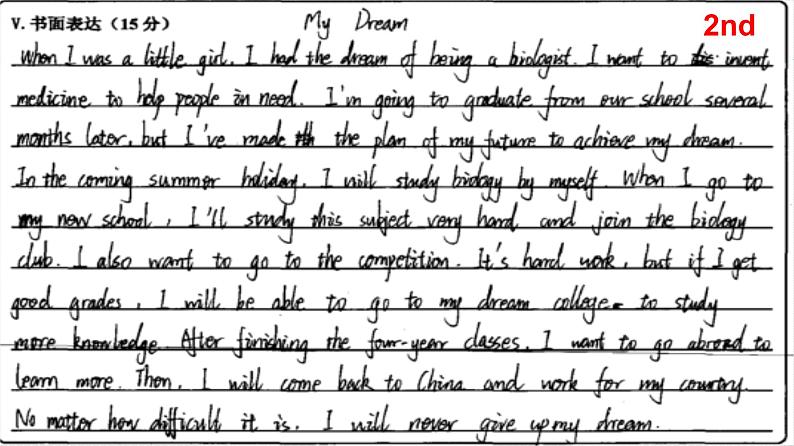 V. 书面表达（15 分）
My Dream
2nd
When I was a little girl, I had the dream of being a biologist. I want to invent
medicine to help people in need. I'm going to graduate from our school several
months later, but I've made the plan of my future to achieve my dream.
In the coming summer holiday, I will study biology by myself. When I go to
my new school, I'll study this subject very hard and join the biology
club. I also want to go to the competition. It's hard work, but if I get
good grades, I will be able to go to my dream college to study
more knowledge. After finishing the four-year classes, I want to go abroad to
learn more. Then, I will come back to China and work for my country.
No matter how difficult it is, I will never give up my dream.